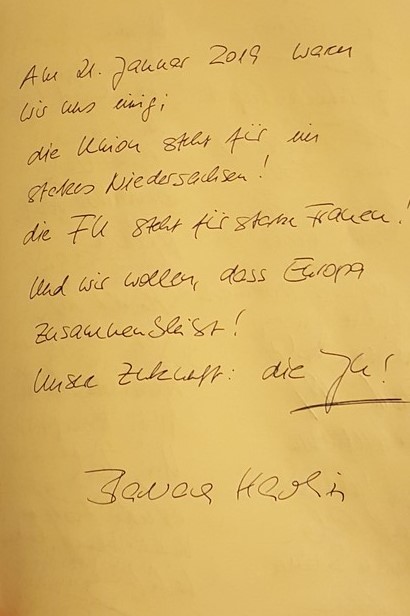 Am 21. Januar 2019 waren
wir uns einig,
die Union steht für ein
starkes Niedersachsen!
die FU steht für starke Frauen!
Und wir wollen, dass Europa
zusammenbleibt!
Unsere Zukunft: die JU!